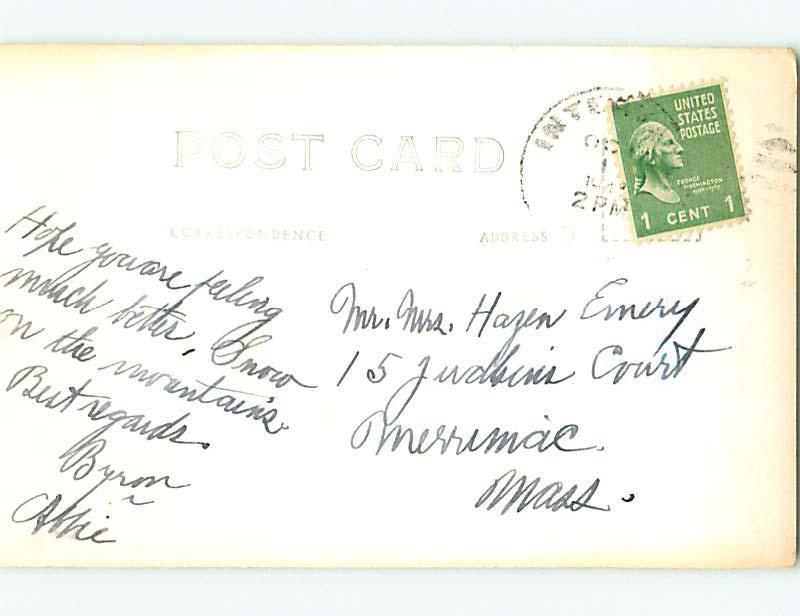 POST CARD
CORRESPONDENCE
ADDRESS
2 PM
UNITED
STATES
POSTAGE
GEORGE
WASHINGTON
1 CENT 1
Hope you are feeling
much better, Snow
on the mountains.
Best regards.
Byron
Abbie
Mr. Mrs. Hazen Emery
15 Judkins Court
Merrimac.
Mass.